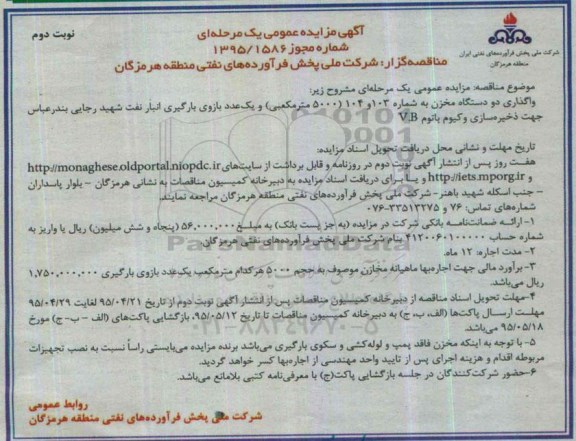 آگهی مزایده عمومی یک مرحله‌ای
نوبت دوم
شماره مجوز ۱۳۹۵/۱۵۸۶
مناقصه‌گزار: شرکت ملی پخش فرآورده‌های نفتی منطقه هرمزگان
شرکت ملی پخش فرآورده‌های نفتی ایران
منطقه هرمزگان
موضوع مناقصه: مزایده عمومی یک مرحله‌ای مشروح زیر:
واگذاری دو دستگاه مخزن به شماره ۱۰۳و ۱۰۴ (۵۰۰۰ مترمکعبی) و یک‌عدد بازوی بارگیری انبار نفت شهید رجایی بندرعباس
جهت ذخیره‌سازی وکیوم باتوم V.B
تاریخ مهلت و نشانی محل دریافت تحویل اسناد مزایده:
هفت روز پس از انتشار آگهی نوبت دوم در روزنامه و قابل برداشت از سایت‌های http://monaghese.oldportal.niopdc.ir
و http://iets.mporg.ir و یا برای دریافت اسناد مزایده به دبیرخانه کمیسیون مناقصات به نشانی هرمزگان – بلوار پاسداران
– جنب اسکله شهید باهنر– شرکت ملی پخش فرآورده‌های نفتی منطقه هرمزگان مراجعه نمایند.
شماره‌های تماس: ۷۶ و ۳۳۵۱۳۲۷۵-۰۷۶
۱– ارائه ضمانت‌نامه بانکی شرکت در مزایده (به جز پست بانک) به مبلغ ۵۶,۰۰۰,۰۰۰ (پنجاه و شش میلیون) ریال یا واریز به
شماره حساب ۴۱۲۰۰۶۰۱۰۰۰۰۰ بنام شرکت ملی پخش فرآورده‌های نفتی هرمزگان.
۲– مدت اجاره: ۱۲ ماه.
۳– برآورد مالی جهت اجاره‌بها ماهیانه مخازن موصوف به حجم ۵۰۰۰ هرکدام مترمکعب یک‌عدد بازوی بارگیری ۱,۷۵۰,۰۰۰,۰۰۰
ریال می‌باشد.
۴–مهلت تحویل اسناد مناقصه از دبیرخانه کمیسیون مناقصات پس از انتشار آگهی نوبت دوم از تاریخ ۹۵/۰۴/۲۱ لغایت ۹۵/۰۴/۲۹
مهلت ارسال پاکت‌ها (الف، ب، ج) به دبیرخانه کمیسیون مناقصات تا تاریخ ۹۵/۰۵/۱۲، بازگشایی پاکت‌های (الف – ب– ج) مورخ
۹۵/۰۵/۱۸ می‌باشد.
۵– با توجه به اینکه مخزن فاقد پمپ و لوله‌کشی و سکوی بارگیری می‌باشد برنده مزایده می‌بایستی راساً نسبت به نصب تجهیزات
مربوطه اقدام و هزینه اجرای پس از تایید واحد مهندسی از اجاره‌بها کسر خواهد گردید.
۶–حضور شرکت‌کنندگان در جلسه بازگشایی پاکت(ج) با معرفی‌نامه کتبی بلامانع می‌باشد.
روابط عمومی
شرکت ملی پخش فرآورده‌های نفتی منطقه هرمزگان
۰۲۱-۸۸۳۴۹۶۷۰-۵